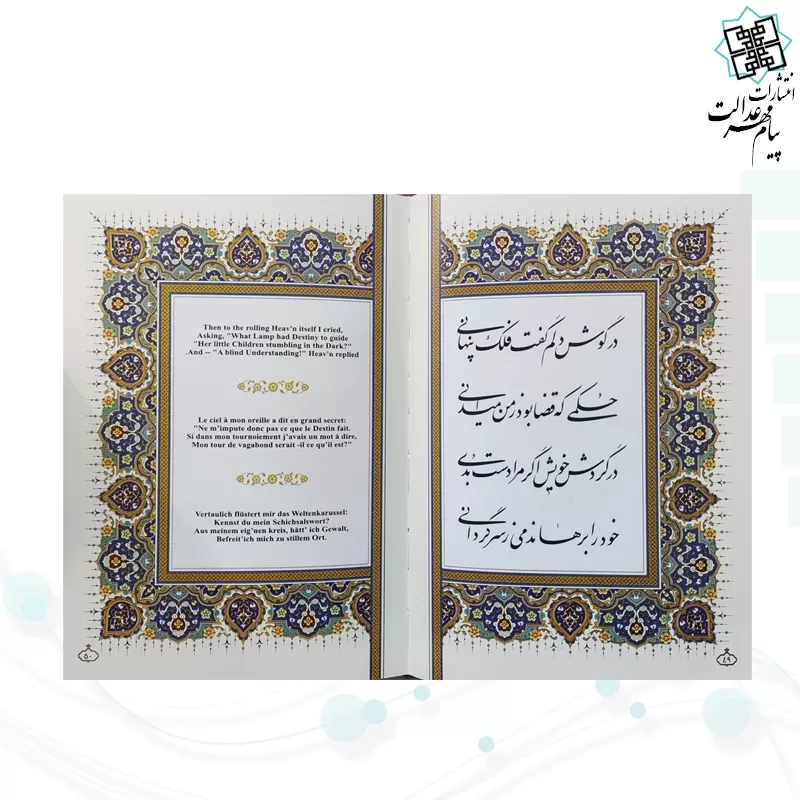 انتشارات
پیام مهر عدالت
در گوش دلم گفت فلک پنهانی
حکمی که قضا بود ز من میدانی
در گردش خویش اگر مرا دست بدی
خود را برهاندمی ز سرگردانی
۴۹
Then to the rolling Heav'n itself I cried,
Asking, "What Lamp had Destiny to guide
"Her little Children stumbling in the Dark?"
.And -- "A blind Understanding!" Heav'n replied
Le ciel à mon oreille a dit en grand secret:
"Ne m'impute donc pas ce que le Destin fait.
Si dans mon tournoiement j'avais un mot à dire,
Mon tour de vagabond serait -il ce qu'il est?"
Vertaulich flüstert mir das Weltenkarussel:
Kennst du mein Schichsalswort?
Aus meinem eig'nen kreis, hätt' ich Gewalt,
Befreit'ich mich zu stillem Ort.
۵۰